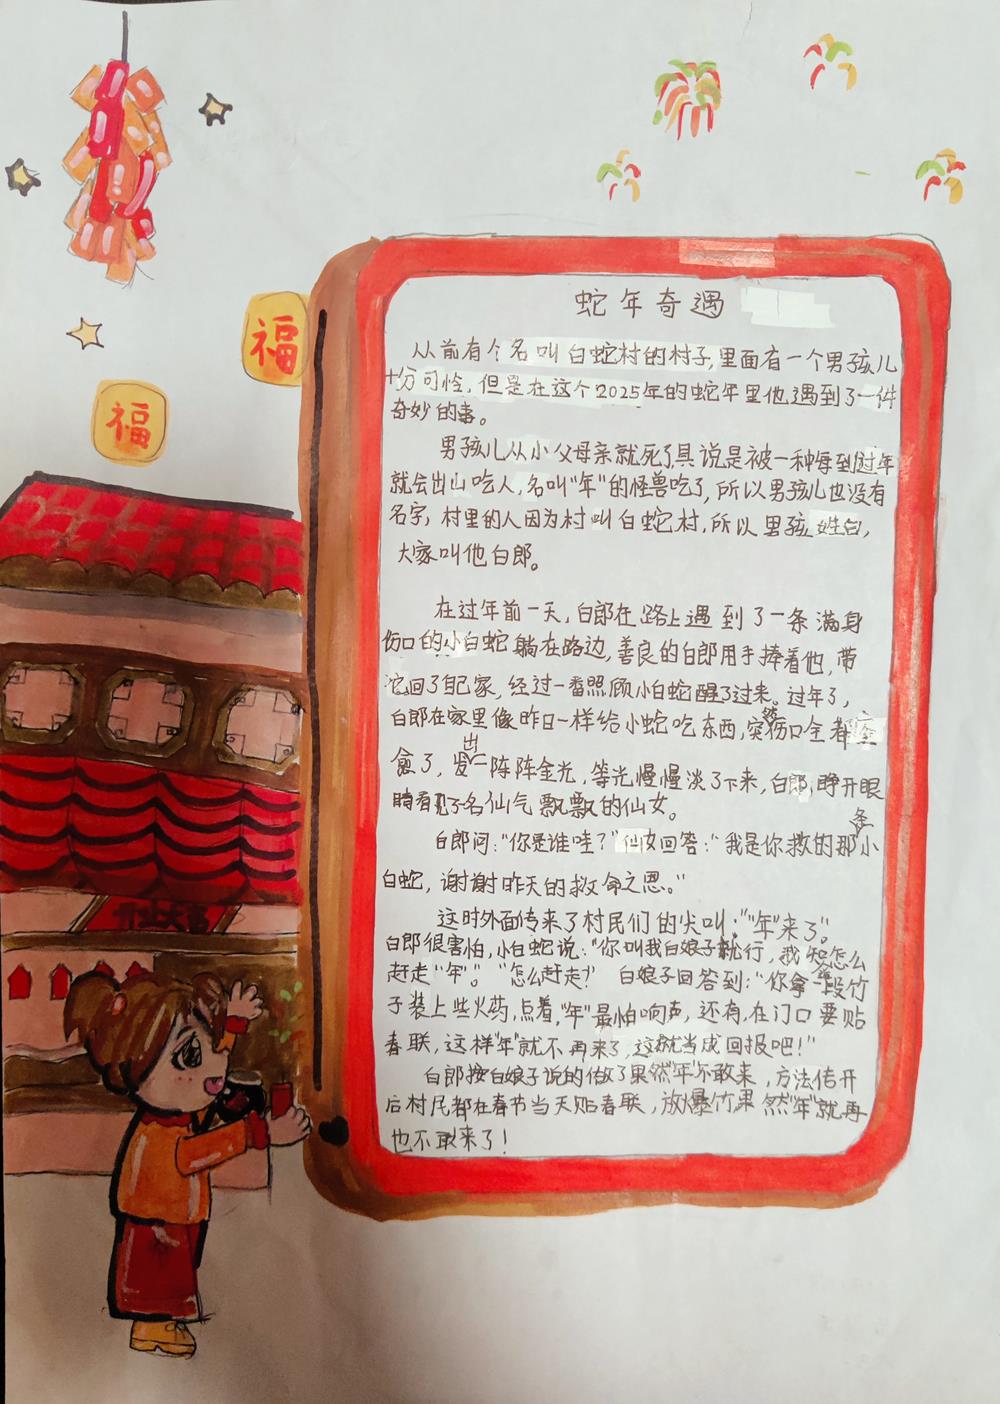 福
福
蛇年奇遇
从前有个名叫白蛇村的村子,里面有一个男孩儿
十分可怜,但是在这个2025年的蛇年里他遇到了一件
奇妙的事。
男孩儿从小父母亲就死了具说是被一种每到过年
就会出山吃人,名叫“年”的怪兽吃了,所以男孩儿也没有
名字,村里的人因为村叫白蛇村,所以男孩姓白,
大家叫他白郎。
在过年前一天,白郎在路上遇到了一条满身
伤口的小白蛇躺在路边,善良的白郎用手捧着他,带
它回了自己家,经过一番照顾小白蛇醒了过来。过年了,
白郎在家里像昨日一样给小蛇吃东西,突然伤口全都痊
愈了,发出一阵阵金光,等光慢慢淡了下来,白郎,睁开眼
睛看见了名仙气飘飘的仙女。
白郎问:“你是谁哇?”仙女回答:“我是你救的那条小
白蛇,谢谢昨天的救命之恩。”
这时外面传来了村民们的尖叫:“年”来了”。
白郎很害怕,小白蛇说:“你叫我白娘子就行,我知怎么
赶走“年”。”“怎么赶走?”白娘子回答到:“你拿一段竹
子装上些火药,点着,“年”最怕响声,还有,在门口要贴
春联,这样“年”就不再来了,这就当成回报吧!”
白郎按白娘子说的做了果然“年”不敢来,方法传开
后村民都在春节当天贴春联,放爆竹果然“年”就再
也不敢来了!